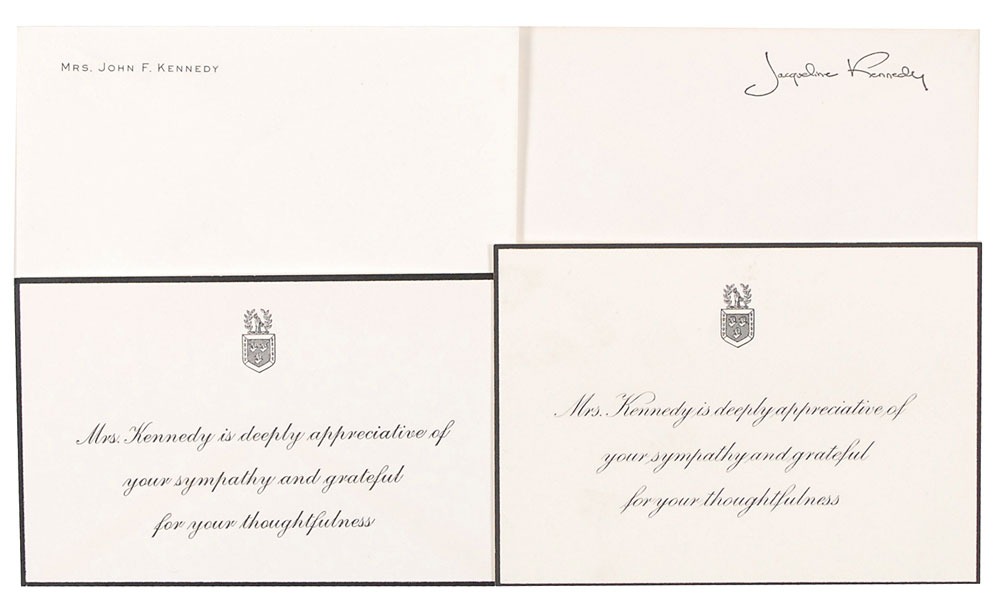 MRS. JOHN F. KENNEDY
Jacqueline Kennedy
Mrs. Kennedy is deeply appreciative of
your sympathy and grateful
for your thoughtfulness
Mrs. Kennedy is deeply appreciative of
your sympathy and grateful
for your thoughtfulness